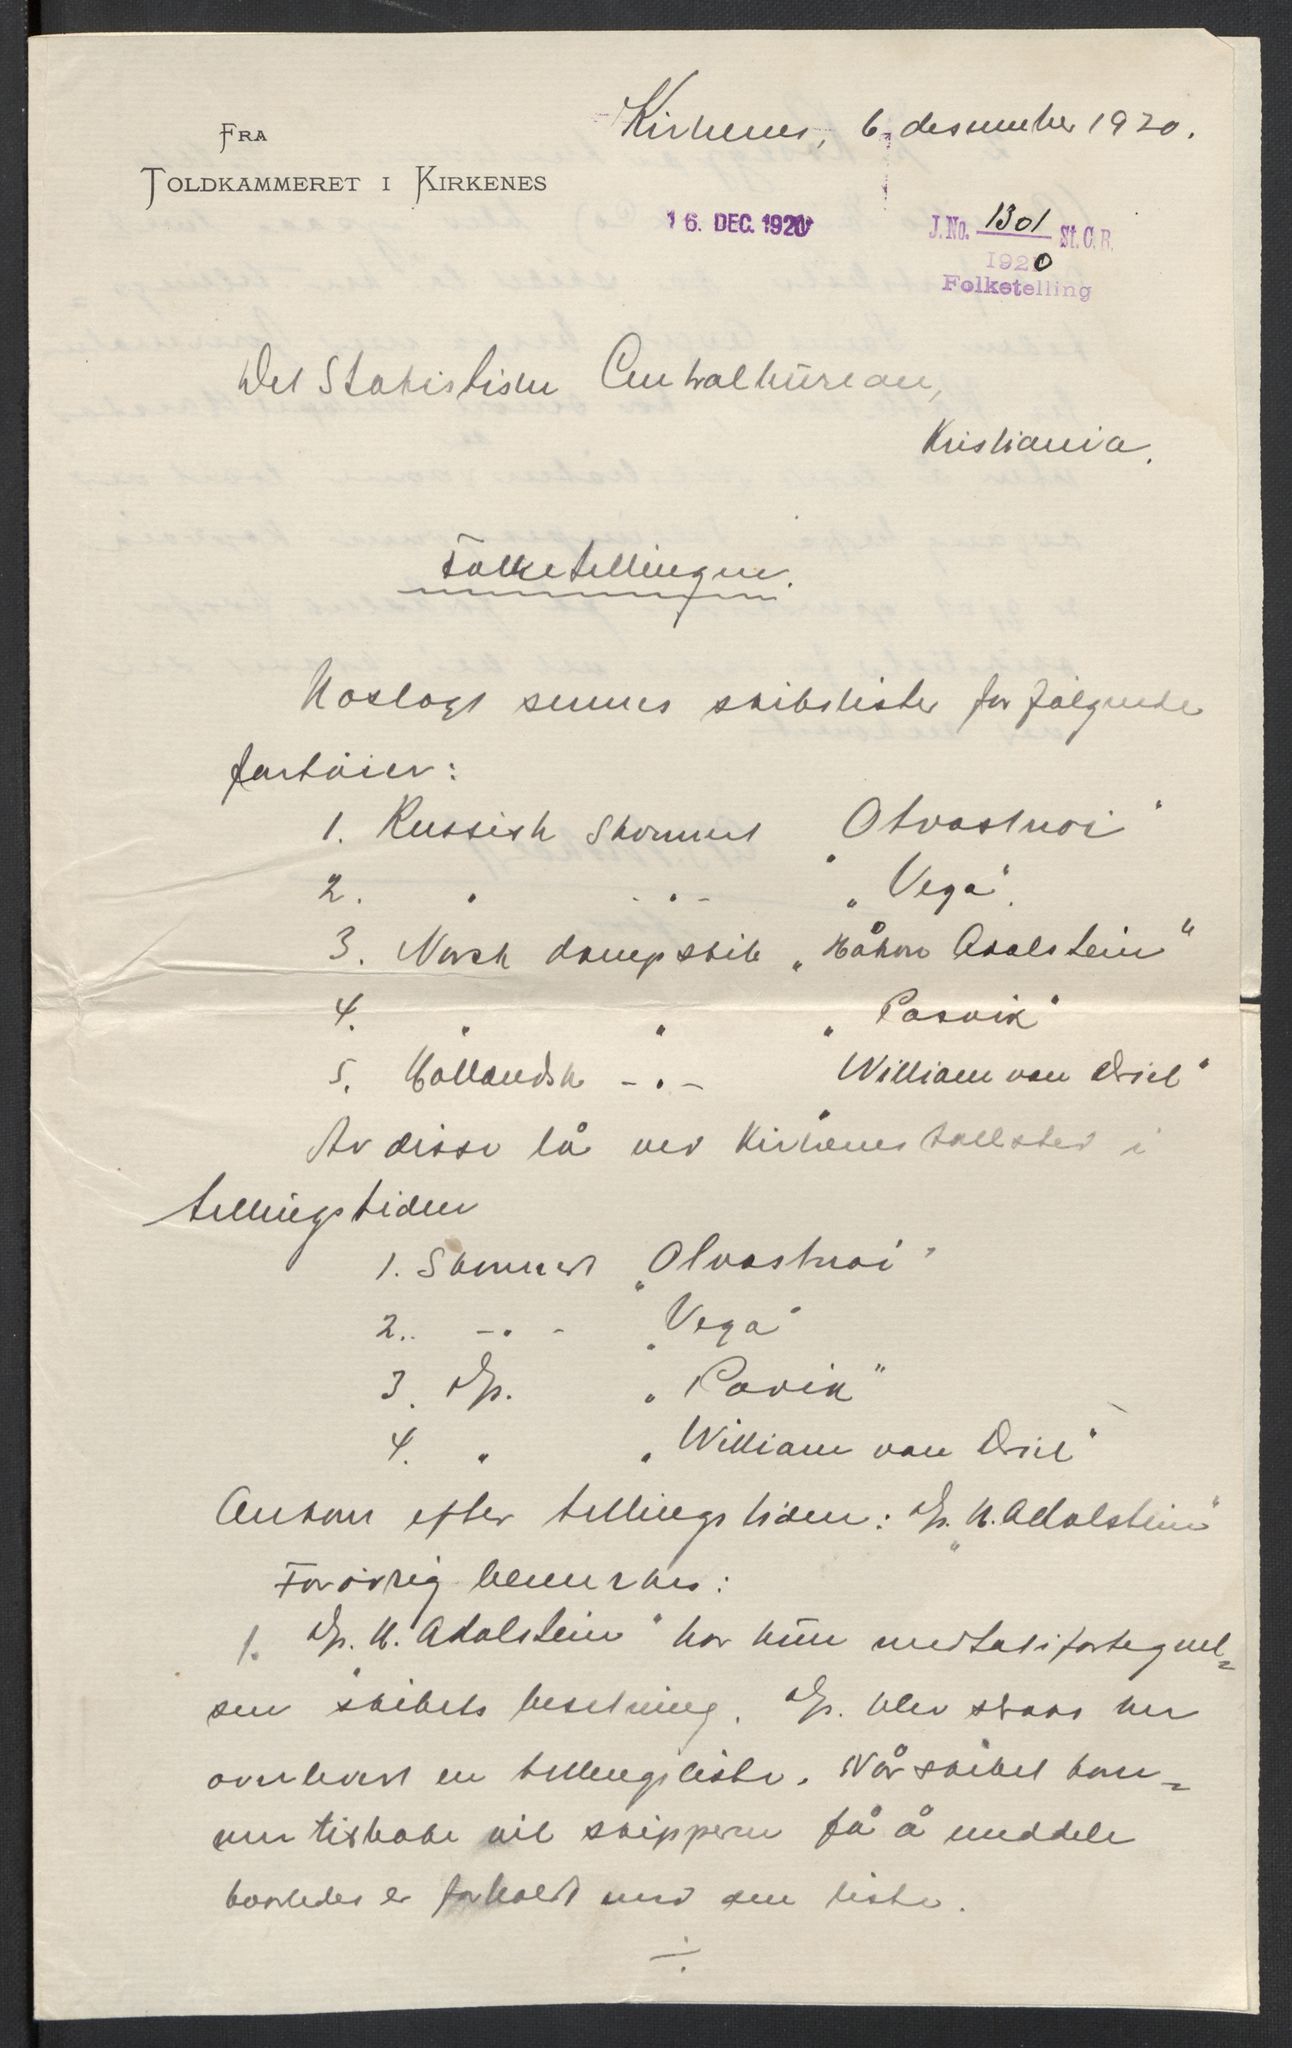 FRA
TOLDKAMMERET I KIRKENES
Kirkenes, 6. desember 1920.
16. DEC. 1920
J. No. 1301 St. C. B.
1920
Folketelling
Det Statistiske Centralbüreau,
Kristiania.
Folketellingen.
Høslagt sennes skibslister for følgende
fartöier:
1. Russisk skonnert "Otvastnoi"
2. " -"- "Vega".
3. Norsk dampskib "Håkon Adalstein"
4. " " "Pasvik"
5. Hollandsk -"- William van Driel"
Av disse lå ved Kirkenes tollsted i
tellingstiden
1. Skonnert "Otvastnoi"
2. -"- "Vega"
3. Ds. "Pasvik"
4. " "William van Driel"
Ankom efter tellingstiden: Ds. "H. Adalstein"
Forövrig bemerkes:
1. Ds. H. Adalstein" har kün medtat i fortegnel=
sen skibets besetning. Ds. blev straks her
overlevert en tellingsliste. Når skibet kom=
mer tilbake vil skipperen få å meddele
hvorledes er forholdt med den liste.